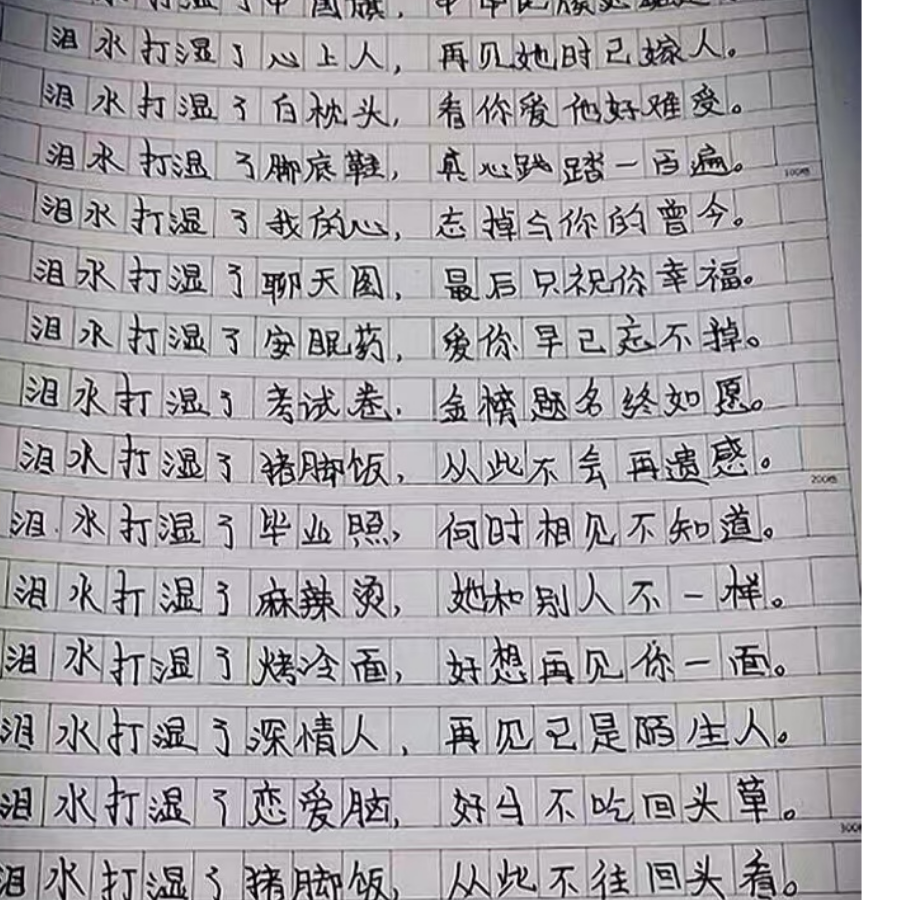 泪水打湿了中国旗，中华民族
泪水打湿了心上人，再见她时已嫁人。
泪水打湿了白枕头，看你爱他好难受。
泪水打湿了脚底鞋，真心践踏一百遍。
100格
泪水打湿了我的心，忘掉与你的曾今。
泪水打湿了聊天图，最后只祝你幸福。
泪水打湿了安眠药，爱你早已忘不掉。
泪水打湿了考试卷，金榜题名终如愿。
泪水打湿了猪脚饭，从此不会再遗憾。
200格
泪水打湿了毕业照，何时相见不知道。
泪水打湿了麻辣烫，她和别人不一样。
泪水打湿了烤冷面，好想再见你一面。
泪水打湿了深情人，再见已是陌生人。
泪水打湿了恋爱脑，好马不吃回头草。
300格
泪水打湿了猪脚饭，从此不往回头看。